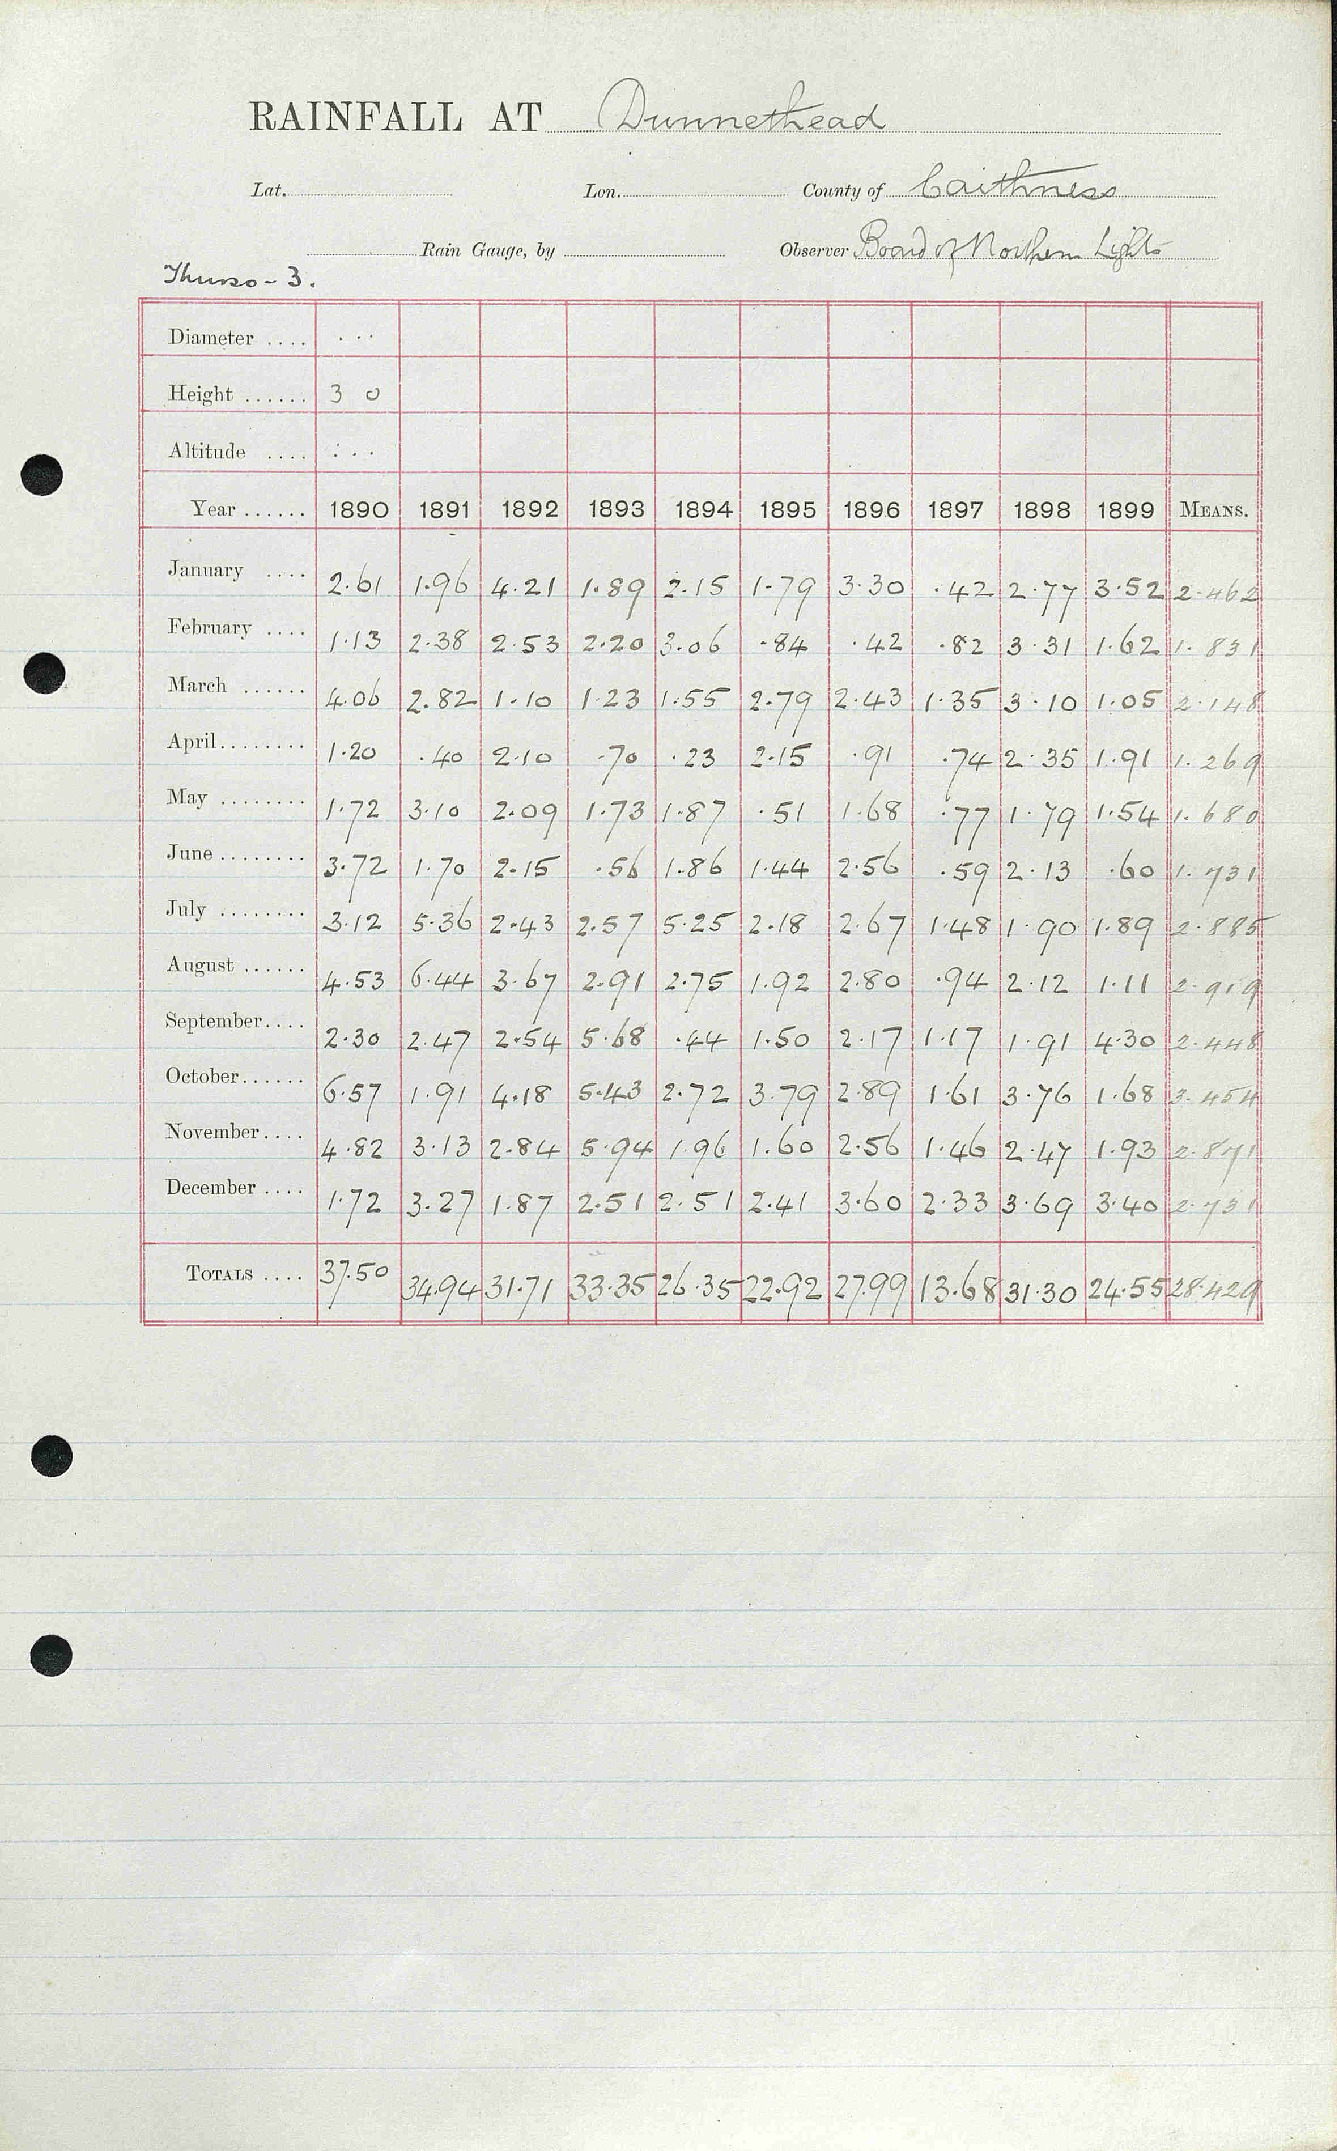 RAINFALL AT Dunnethead
Lat. Lon. County of Caithness
Rain Gauge, by Observer Board of Northern Lights
Thurso - 3.
Diameter .... ...
Height ...... 3 0
Altitude .... ...
Year ...... 1890 1891 1892 1893 1894 1895 1896 1897 1898 1899 MEANS.
January .... 2.61 1.96 4.21 1.89 2.15 1.79 3.30 .42 2.77 3.52 2.462
February .... 1.13 2.38 2.53 2.20 3.06 .84 .42 .82 3.31 1.62 1.831
March ...... 4.06 2.82 1.10 1.23 1.55 2.79 2.43 1.35 3.10 1.05 2.148
April........ 1.20 .40 2.10 .70 .23 2.15 .91 .74 2.35 1.91 1.269
May ........ 1.72 3.10 2.09 1.73 1.87 .51 1.68 .77 1.79 1.54 1.680
June ........ 3.72 1.70 2.15 .56 1.86 1.44 2.56 .59 2.13 .60 1.731
July ........ 3.12 5.36 2.43 2.57 5.25 2.18 2.67 1.48 1.90 1.89 2.885
August ...... 4.53 6.44 3.67 2.91 2.75 1.92 2.80 .94 2.12 1.11 2.919
September.... 2.30 2.47 2.54 5.68 .44 1.50 2.17 1.17 1.91 4.30 2.448
October...... 6.57 1.91 4.18 5.43 2.72 3.79 2.89 1.61 3.76 1.68 3.454
November.... 4.82 3.13 2.84 5.94 1.96 1.60 2.56 1.46 2.47 1.93 2.871
December .... 1.72 3.27 1.87 2.51 2.51 2.41 3.60 2.33 3.69 3.40 2.731
TOTALS .... 37.50 34.94 31.71 33.35 26.35 22.92 27.99 13.68 31.30 24.55 28.429